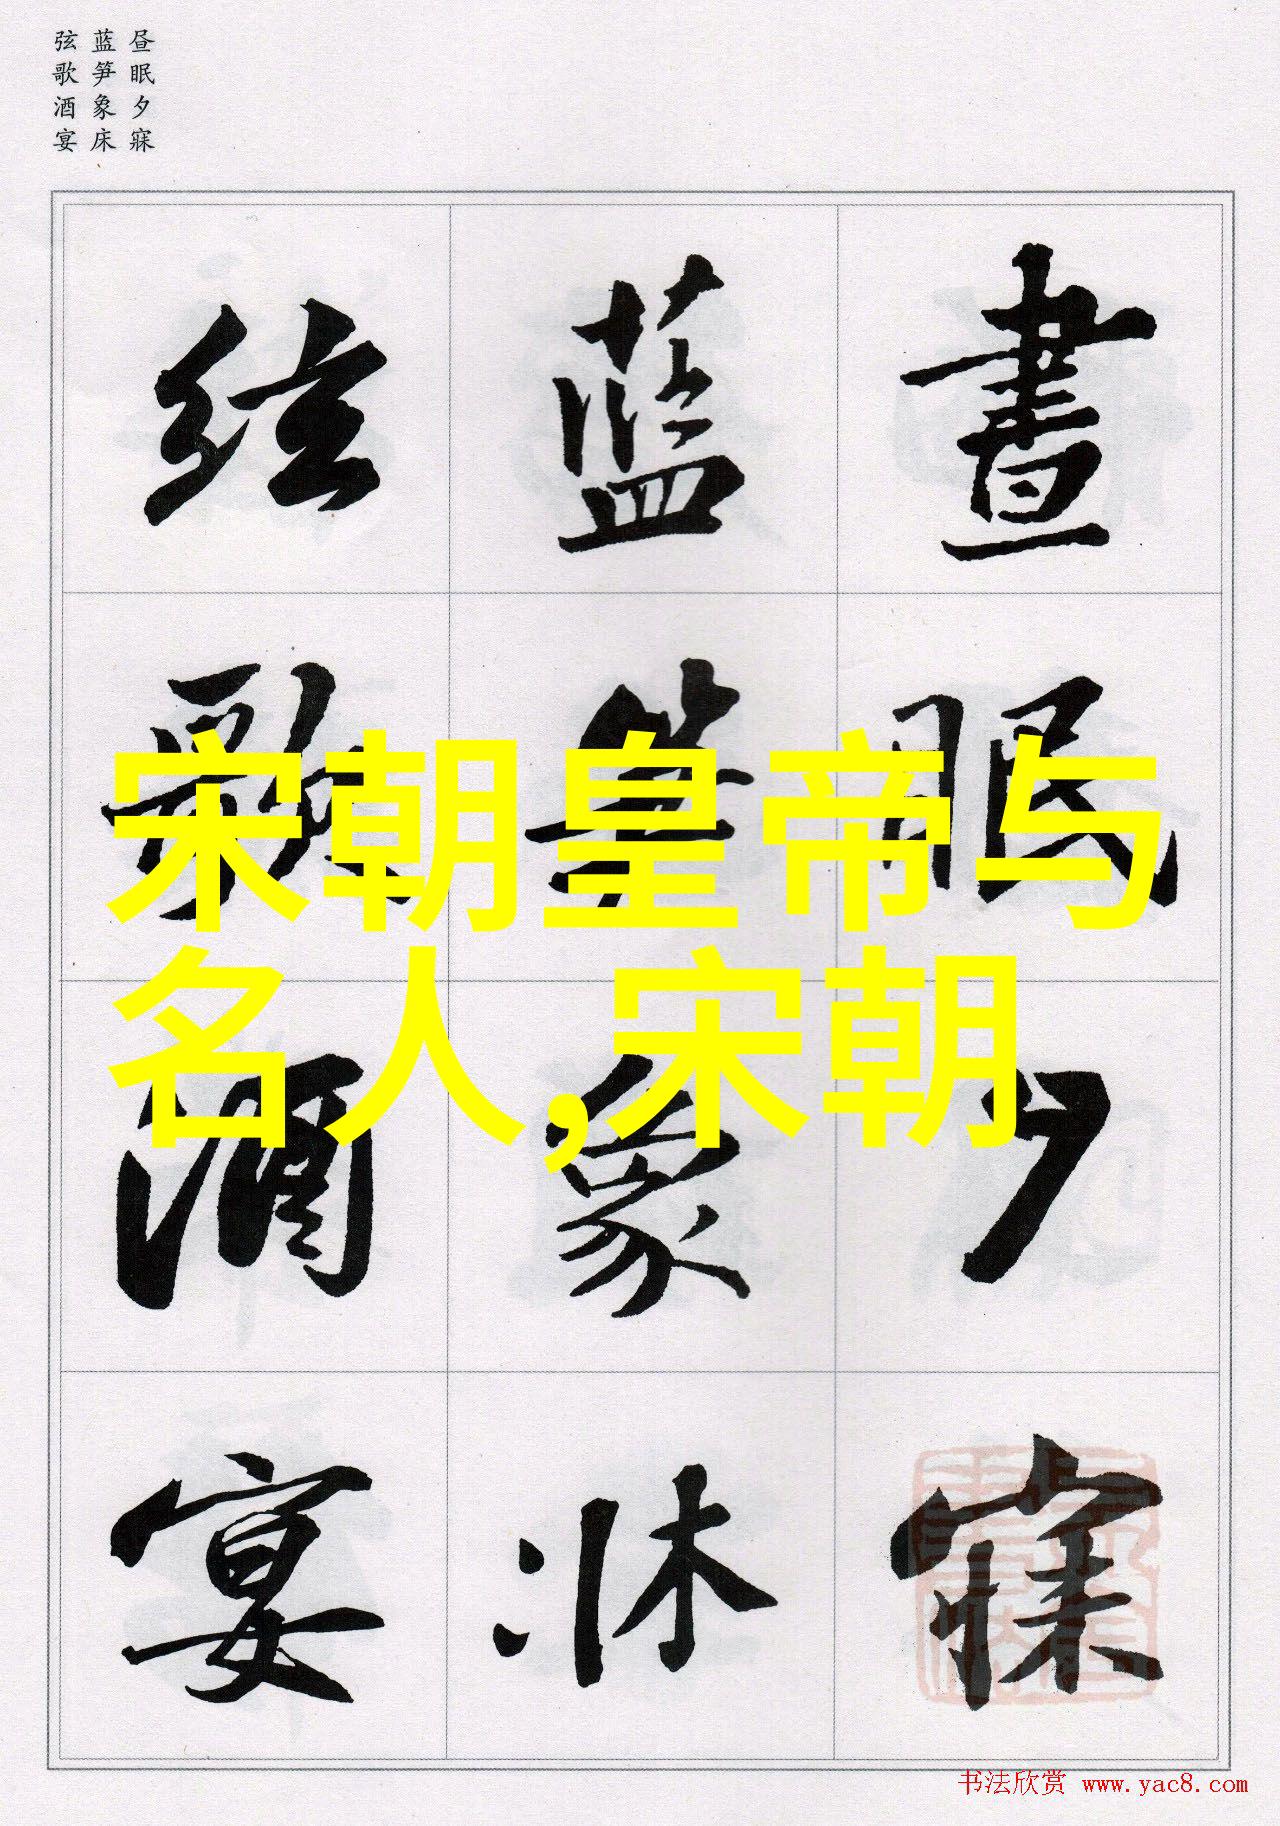 昼眠夕寐
蓝笋象床
弦歌酒宴
晝眠夕寐
藍笋象床
弦歌酒宴
宋朝皇帝与
名人,宋朝
书法欣赏 www.yac8.com